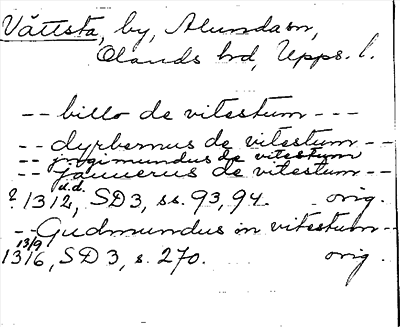 Vättsta, by, Alundasn,
Olands hd, Upps. l.
-- billo de vitestum ---
-- dyrbernus de vitestum --
-- jngimundus de vitestum
-- gauuerus de vitestum --
u.d.
? 1312, SD3, ss. 93, 94. orig.
-- Gudmundus in vitestum --
13/9
1316, SD3, s. 270. orig.